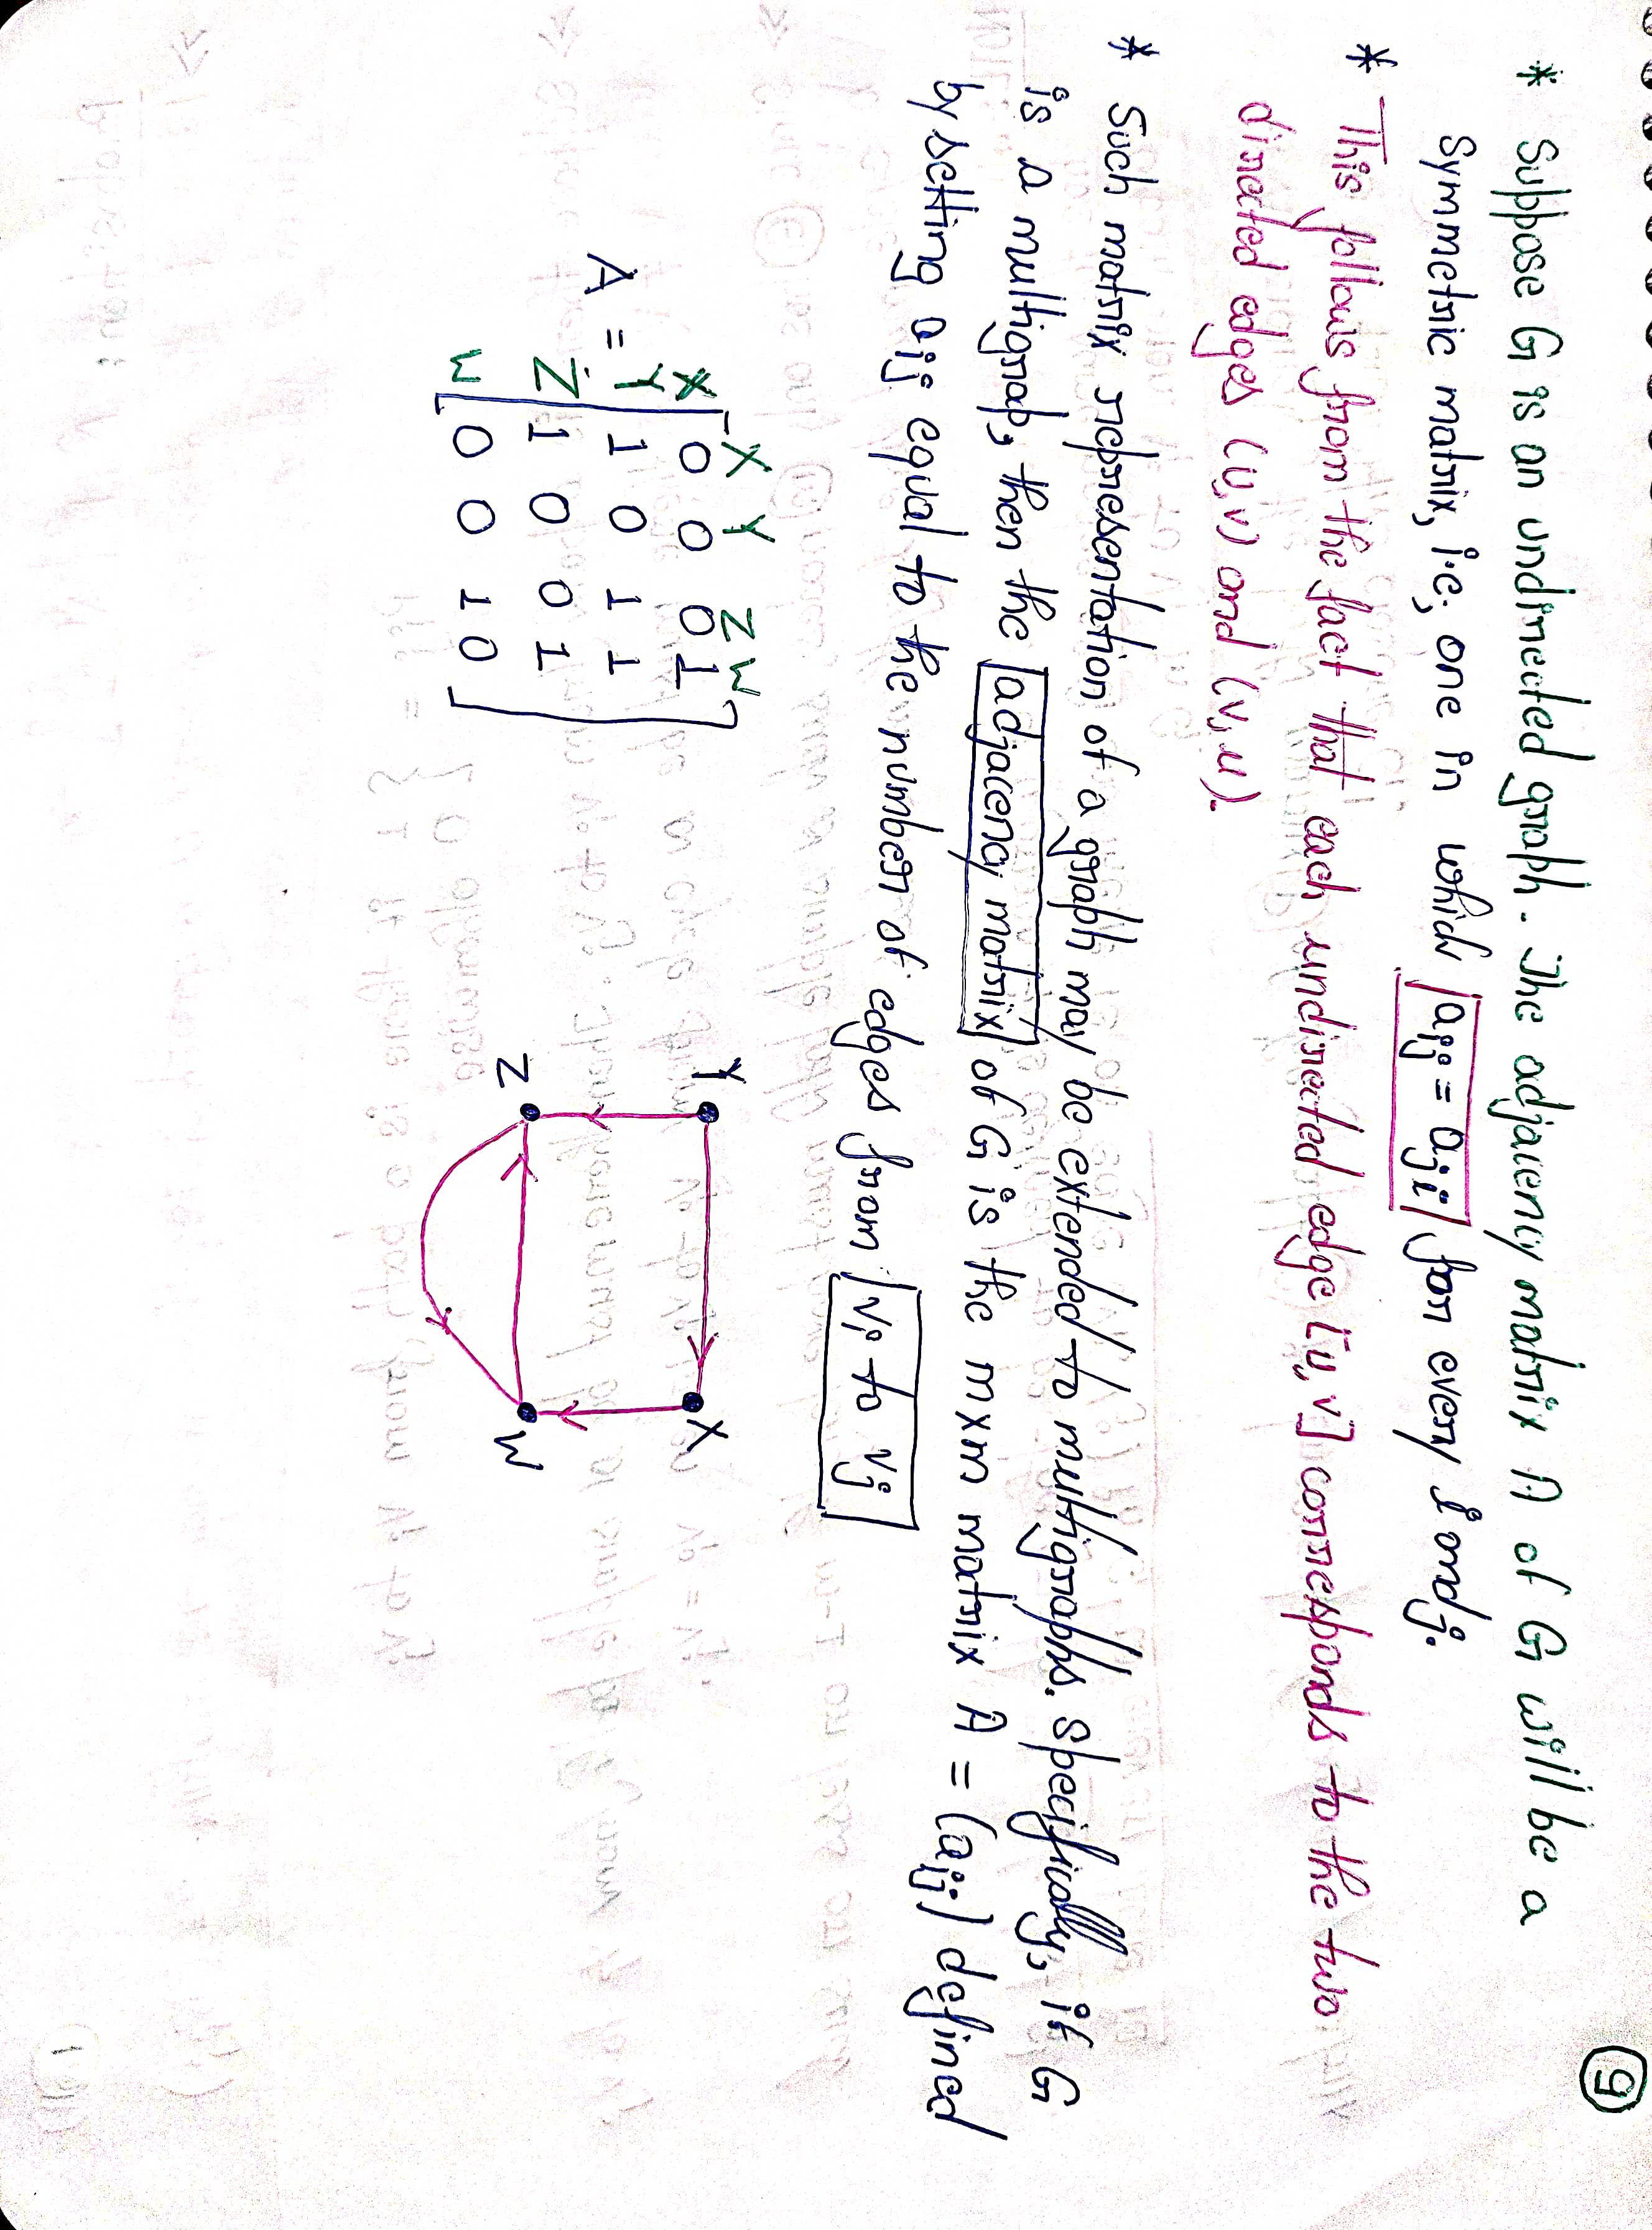 9
* Suppose G is an undirected graph. The adjacency matrix A of G will be a
Symmetric matrix, i.e; one in which aij = aji for every i and j.
* This follows from the fact that each undirected edge [u, v] corresponds to the two
directed edges (u, v) and (v, u).
* Such matrix representation of a graph may be extended to multigraphs. Specifically, if G
is a multigraph, then the adjacency matrix of G is the mxm matrix A = (aij) defined
by setting aij equal to the number of edges from vi to vj
X Y Z W
X 0 0 0 1
A = Y 1 0 1 1
Z 1 0 0 1
W 0 0 1 0
Y X
Z W